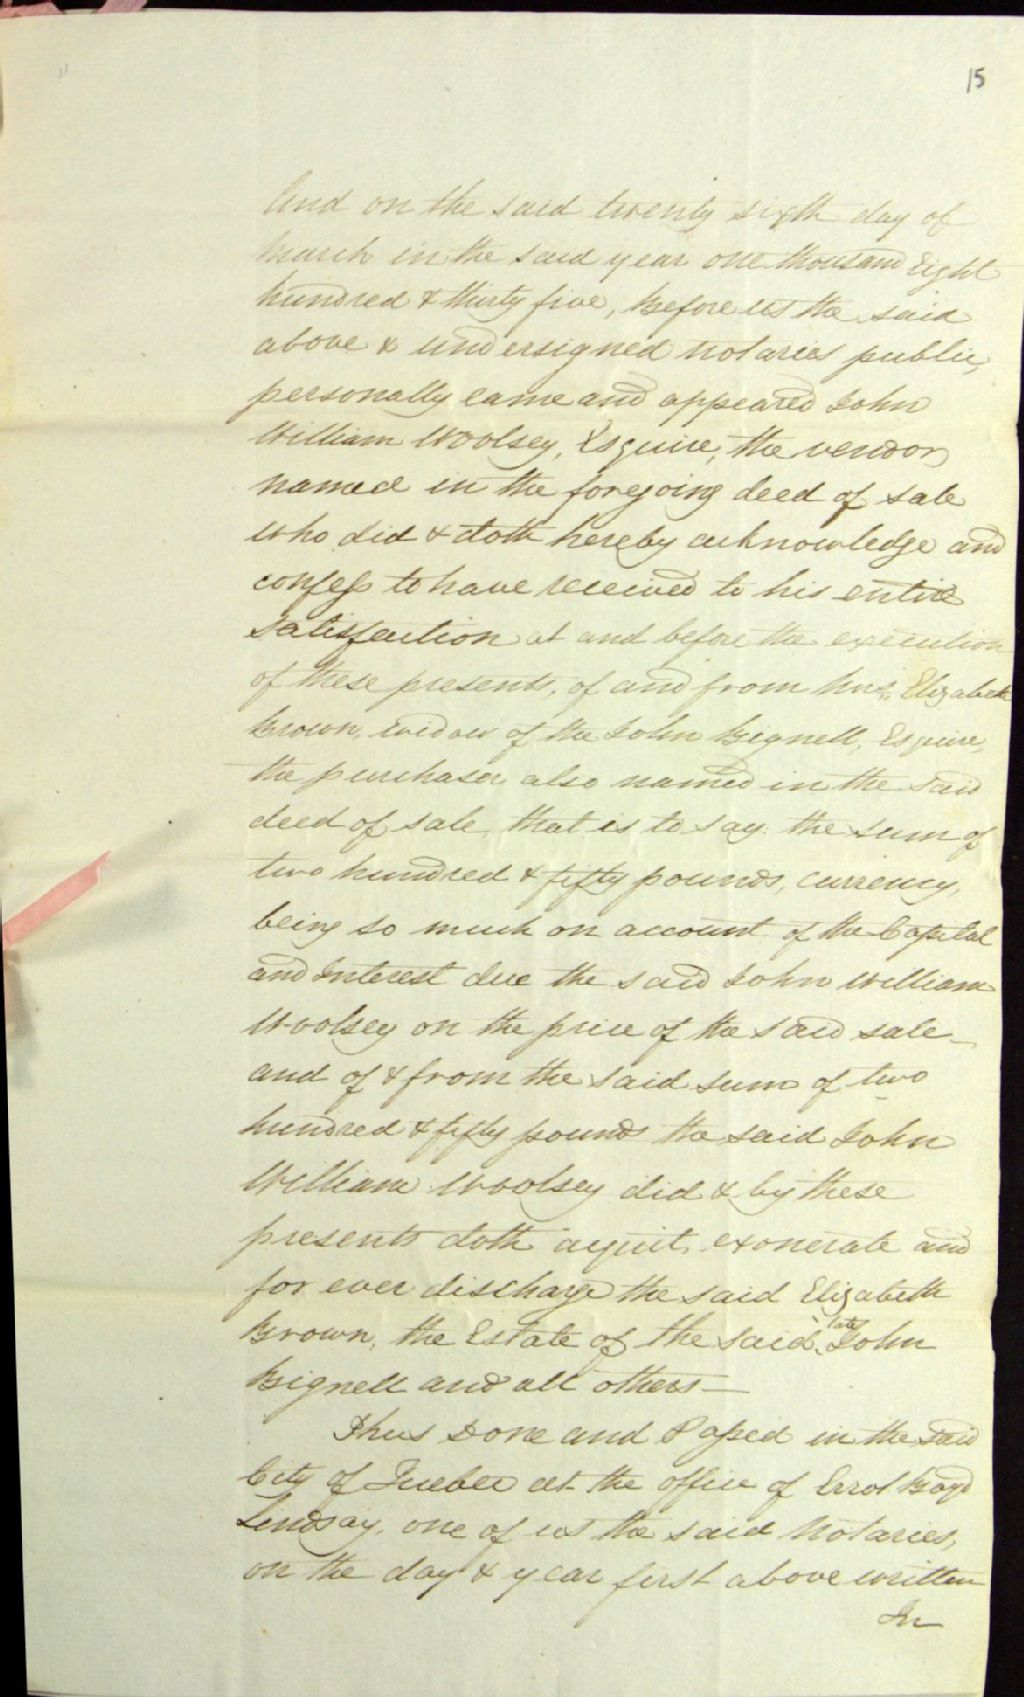 15
And on the said twenty sixth day of
March in the said year one thousand Eight
hundred & thirty five, Before us the said
above & undersigned notaries public,
personally came and appeared John
William Woolsey, Esquire, the vendor
named in the foregoing deed of sale
who did & doth hereby acknowledge and
confess to have received to his entire
satisfaction at and before the execution
of these presents, of and from Mrs. Elizabeth
Brown, widow of the John Bignell, Esquire,
the purchaser also named in the said
deed of sale that is to say: the sum of
two hundred & fifty pounds, currency,
being so much on account of the Capital
and Interest due the said John William
Woolsey on the price of the said sale —
and of & from the said sum of two
hundred & fifty pounds the said John
William Woolsey did & by these
presents doth acquit, exonerate and
for ever discharge the said Elizabeth
Brown, the Estate of the said late John
Bignell and all others —
Thus Done and Passed in the said
City of Quebec at the office of Errol Boyd
Lindsay, one of us the said Notaries,
on the day & year first above written
In